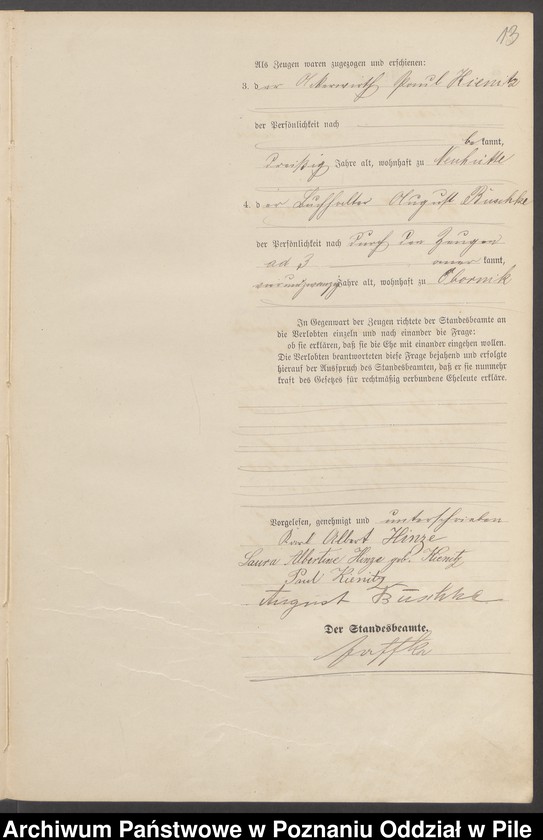 13
Als Zeugen waren zugezogen und erschienen:
3. der Ackerwirth Paul Kienitz
der Persönlichkeit nach
be kannt,
dreißig Jahre alt, wohnhaft zu Neuhütte
4. der Buchhalter August Buschke
der Persönlichkeit nach durch den Zeugen
ad 3 aner kannt,
vierundzwanzig Jahre alt, wohnhaft zu Obornik
In Gegenwart der Zeugen richtete der Standesbeamte an
die Verlobten einzeln und nach einander die Frage:
ob sie erklären, daß sie die Ehe mit einander eingehen wollen.
Die Verlobten beantworteten diese Frage bejahend und erfolgte
hierauf der Ausspruch des Standesbeamten, daß er sie nunmehr
kraft des Gesetzes für rechtmäßig verbundene Eheleute erkläre.
Vorgelesen, genehmigt und unterschrieben
Karl Albert Hinze
Laura Albertine Hinze geb. Kienitz
Paul Kienitz
August Buschke
Der Standesbeamte.
Archiwum Państwowe w Poznaniu Oddział w Pile